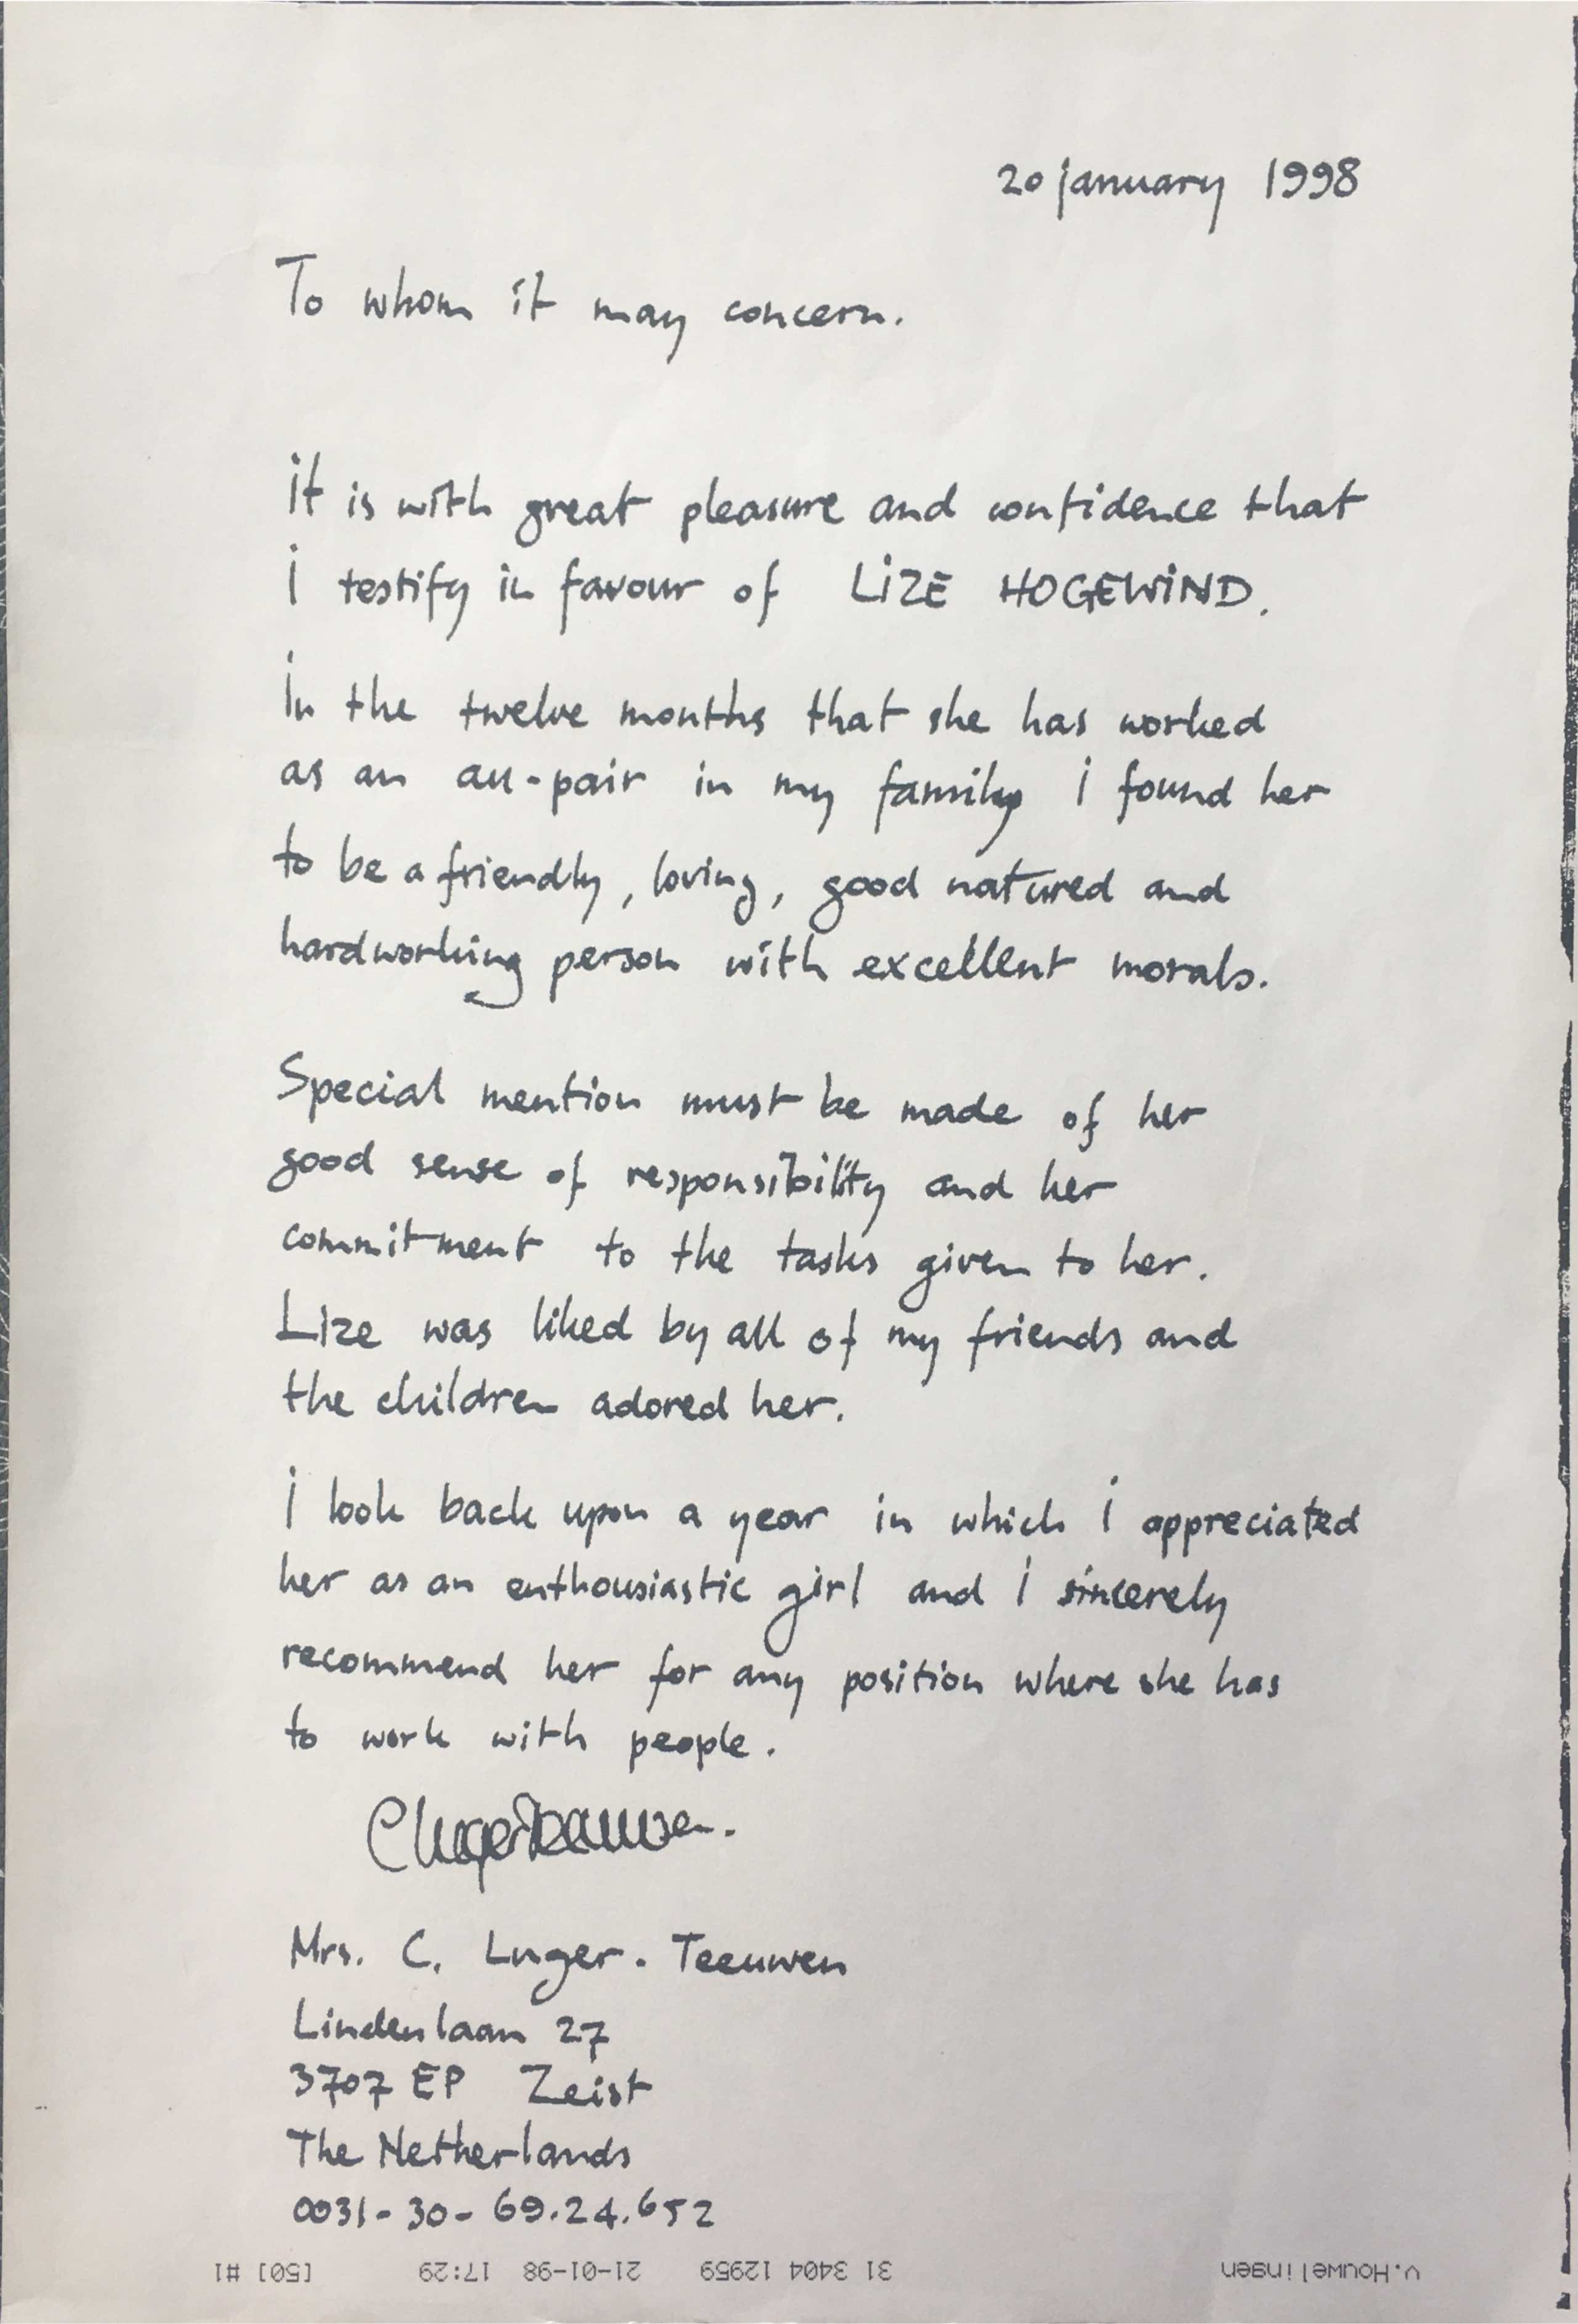 20 january 1998
To whom it may concern.
it is with great pleasure and confidence that
i testify in favour of LiZE HOGEWiND.
In the twelve months that she has worked
as an au-pair in my family i found her
to be a friendly, loving, good natured and
hardworking person with excellent morals.
Special mention must be made of her
good sense of responsibility and her
commitment to the tasks given to her.
Lize was liked by all of my friends and
the children adored her.
i look back upon a year in which i appreciated
her as an enthousiastic girl and i sincerely
recommend her for any position where she has
to work with people.
Mrs. C. Luger-Teeuwen
Lindenlaan 27
3707 EP Zeist
The Netherlands
0031-30-69.24.652
v.Houwelingen 31 3404 12959 21-01-98 17:29 [50] #1